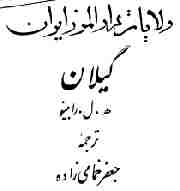 ولایات دارالمرز ایران
گیلان
ه . ل . رابینو
ترجمهٔ
جعفر خمامی زاده